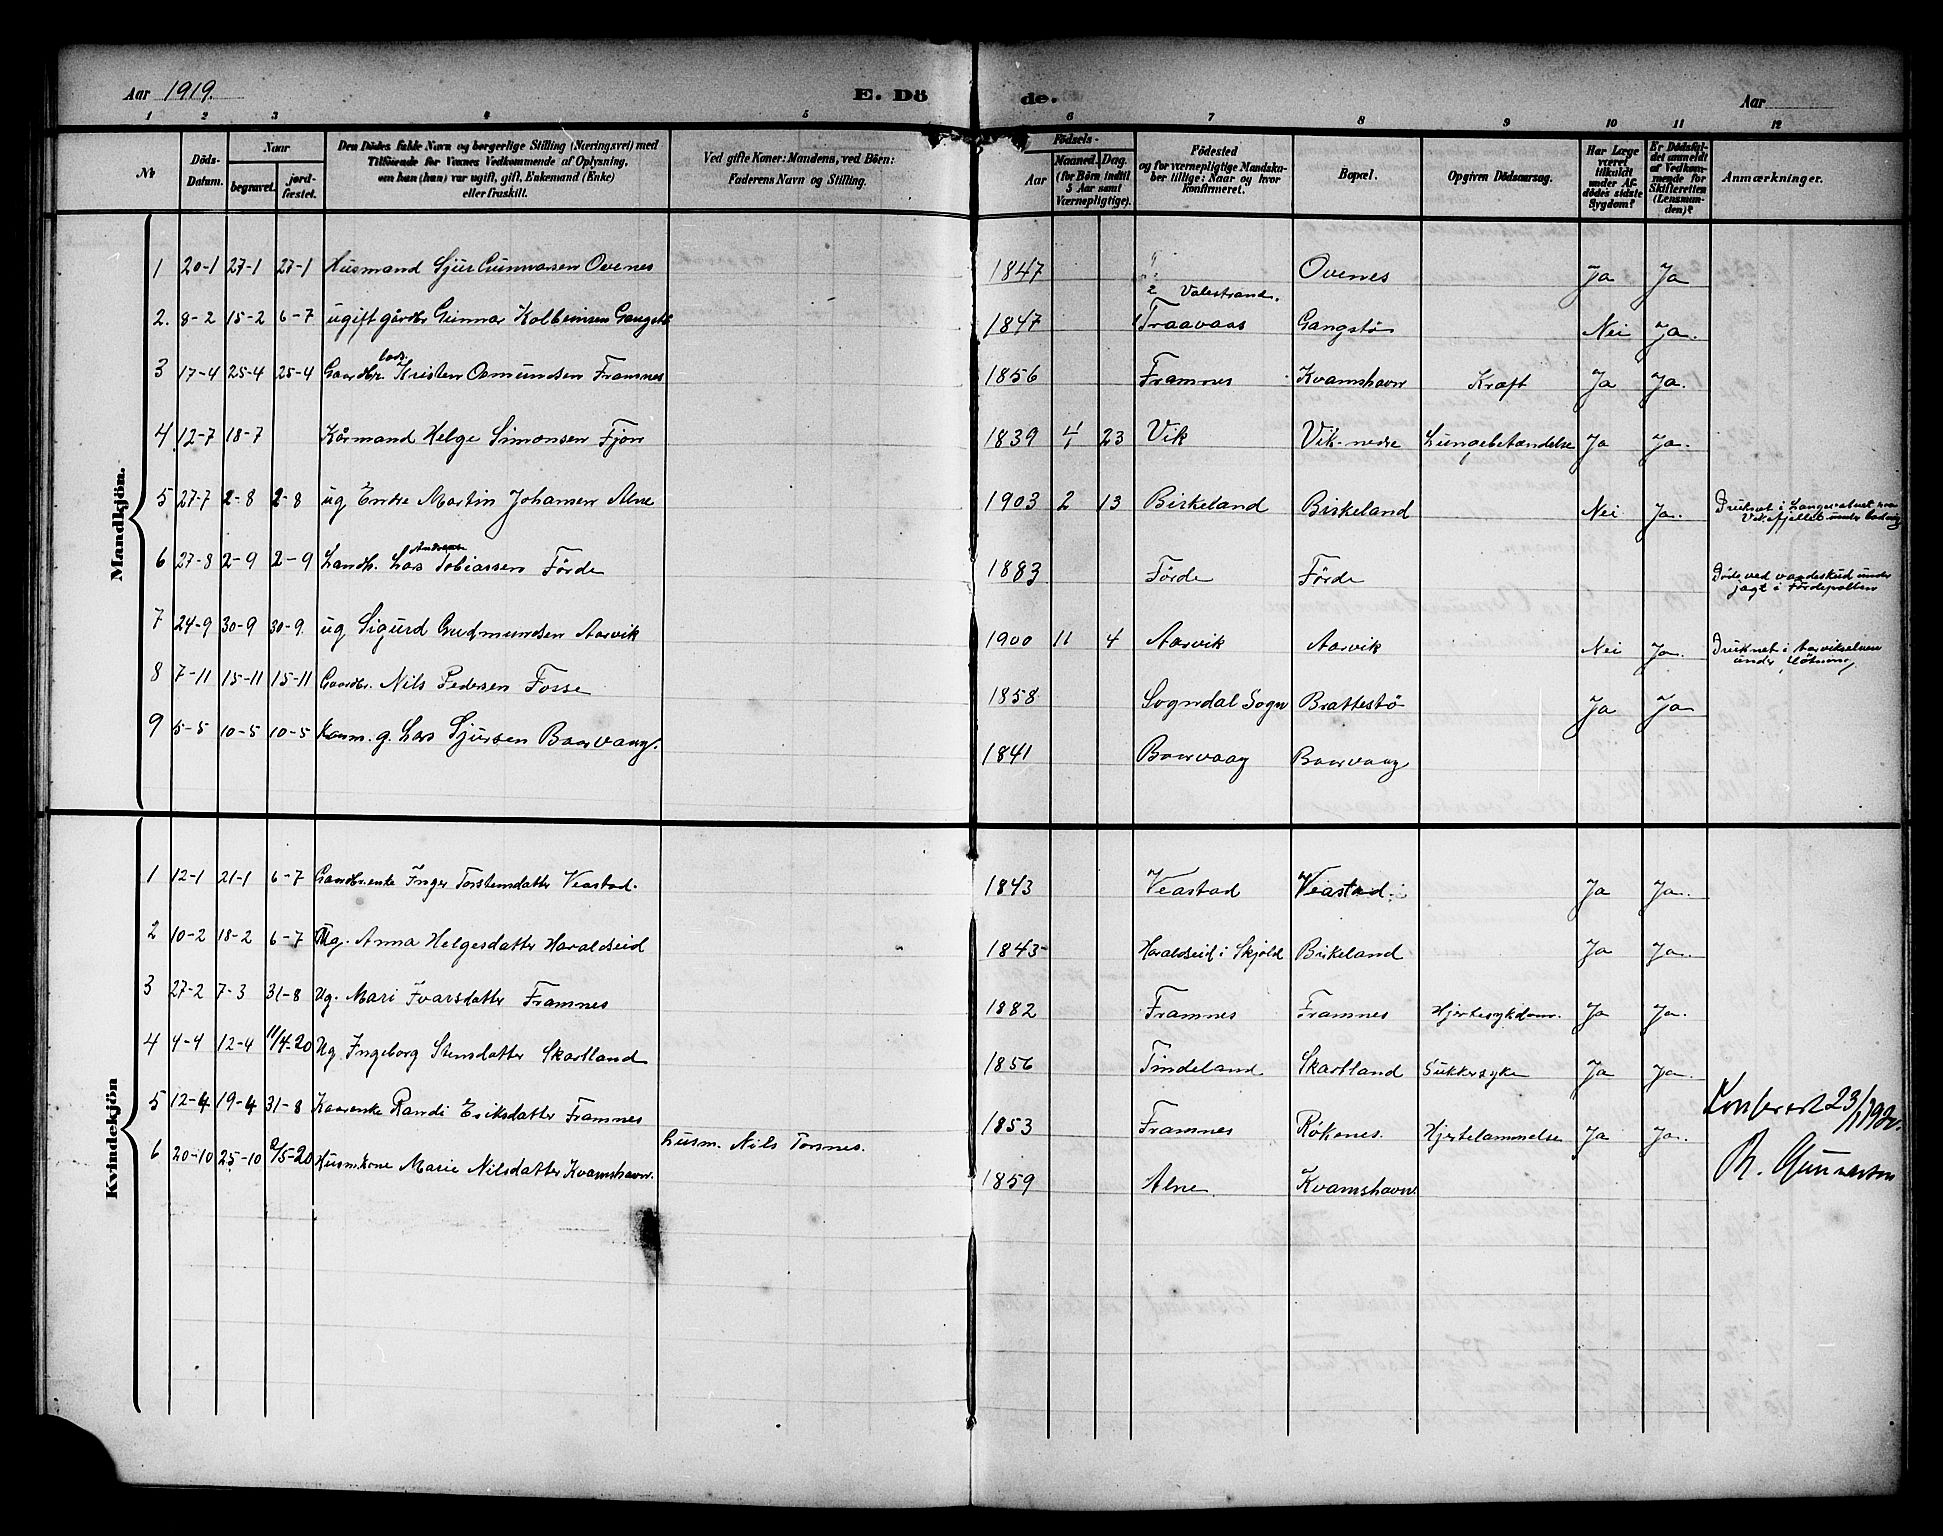 Aar 1919.
E. Döde.
Aar
1 2 3 4 5 6 7 8 9 10 11 12
No
Döds-Datum.
Naar
begravet.
jord-fæstet.
Den Dödes fulde Navn og borgerlige Stilling (Næringsvei) med
Tilföiende for Voxnes Vedkommende af Oplysning,
om hun (han) var ugift, gift, Enkemand (Enke)
eller fraskilt.
Ved gifte Koner: Mandens, ved Börn:
Faderens Navn og Stilling.
Födsels-
Aar
Maaned. Dag.
(for Börn indtil
5 Aar samt
Værnepligtige).
Födested
og for værnepligtige Mandska-
ber tillige: Naar og hvor
konfirmeret.
Bopæl.
Opgiven Dödsaarsag.
Har Læge
været
tilkaldt
under Af-
dödes sidste
Sygdom?
Er Dödsfal-
det anmeldt
af Vedkom-
mende for
Skifteretten
(Lensman-
den)?
Anmærkninger.
Mandkjön.
1 20-1 27-1 27-1 Husmand Sjur Gunnarsen Ovenes 1847 Ovenes Ja Ja
Valestrand.
2. 8-2 15-2 6-7 ugift gårdbr Gunnar Kolbeinsen Gangstø 1847 Traavaas Gangstø Nei Ja.
Lods
3 17-4 25-4 25-4 Gaardbr. Kristen Osmundsen Framnes 1856 Framnes Kvamshavn Kræft Ja Ja.
4 12-7 18-7 Kårmand Helge Simonsen Fjon 1839 4 23 Vik Vik-nedre Lungebetændelse Ja Ja.
5 27-7 2-8 2-8 ug Endre Martin Johansen Alne 1903 2 13 Birkeland Birkeland Nei Ja. Druknet i Langevatnet
Vikefjellet under bading
Andreas
6 27-8 2-9 2-9 Landh. Lars Tobiassen Förde 1883 Förde Förde Døde ved vaadeskud under
jagt i Fördepollen
7 24-9 30-9 30-9. ug Sigurd Gudmundsen Aarvik 1900 11 4 Aarvik Aarvik Nei Ja. Druknet i Aarvikselven
under fløtning
8 7-11 15-11 15-11 Gaardbr. Nils Pedersen Fosse 1858 Sogndal Sogn Brattestø Ja Ja
9 5-5 10-5 10-5 Kaarm. g. Lars Sjursen Baarvaag. 1841 Baarvaag Baarvaag
Kvindekjön
1 12-1 21-1 6-7 Gaardbr.enke Inger Torsteinsdatter Veastad. 1843 Veastad Veastad Ja Ja.
2 10-2 18-2 6-7 Ug. Anna Helgesdatter Haraldseid 1843 Haraldseid i Skjold Birkeland Ja Ja.
3 27-2 7-3 31-8 Ug. Mari Ivarsdatter Framnes 1882 Framnes Framnes Hjertesykdom. Ja Ja.
4 4-4 12-4 11/4-20 Ug. Ingeborg Stensdatter Skartland 1856 Tindeland Skartland Sukkersyke Ja Ja.
5 12-4 19-4 31-8 Kaarenke Randi Eriksdatter Framnes 1853 Framnes Røkenes. Hjertelammelse Ja Ja.
6 20-10 25-10 Husm.kone Marie Nilsdatter Kvamshavn. Husm. Nils Torsnes. 1859 Alne Kvamshavn
Konferert 23/1 1920.
Gunnarson